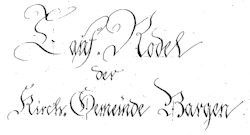 Tauf-Rodel
der
Kirch-Gemeinde Bargen.